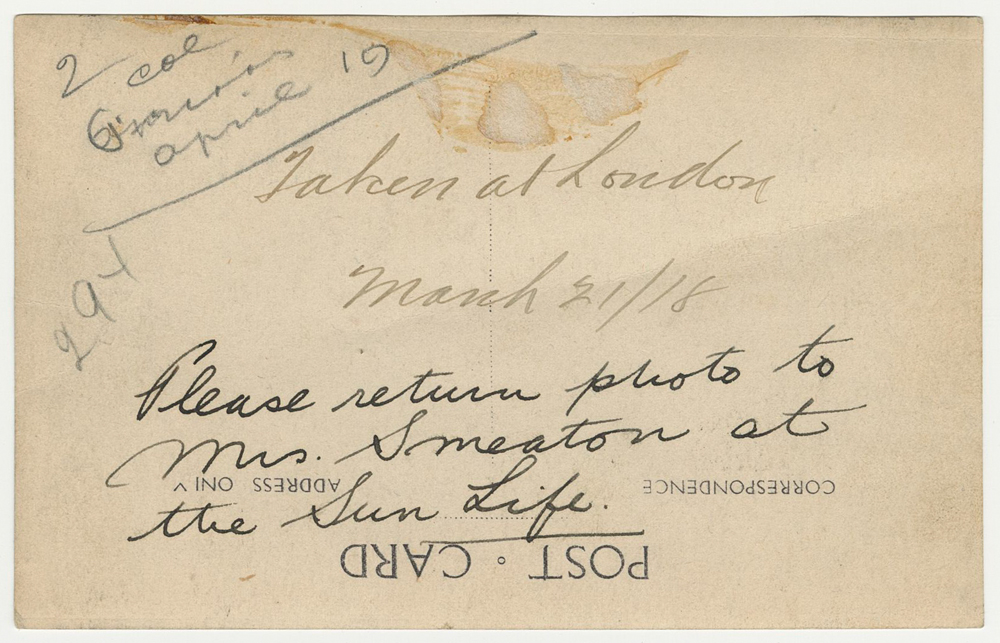 2 col
april 19
Taken at London
March 21/18
Please return photo to
Mrs. Smeaton at
the Sun Life.
CORRESPONDENCE
ADDRESS ONLY
POST CARD